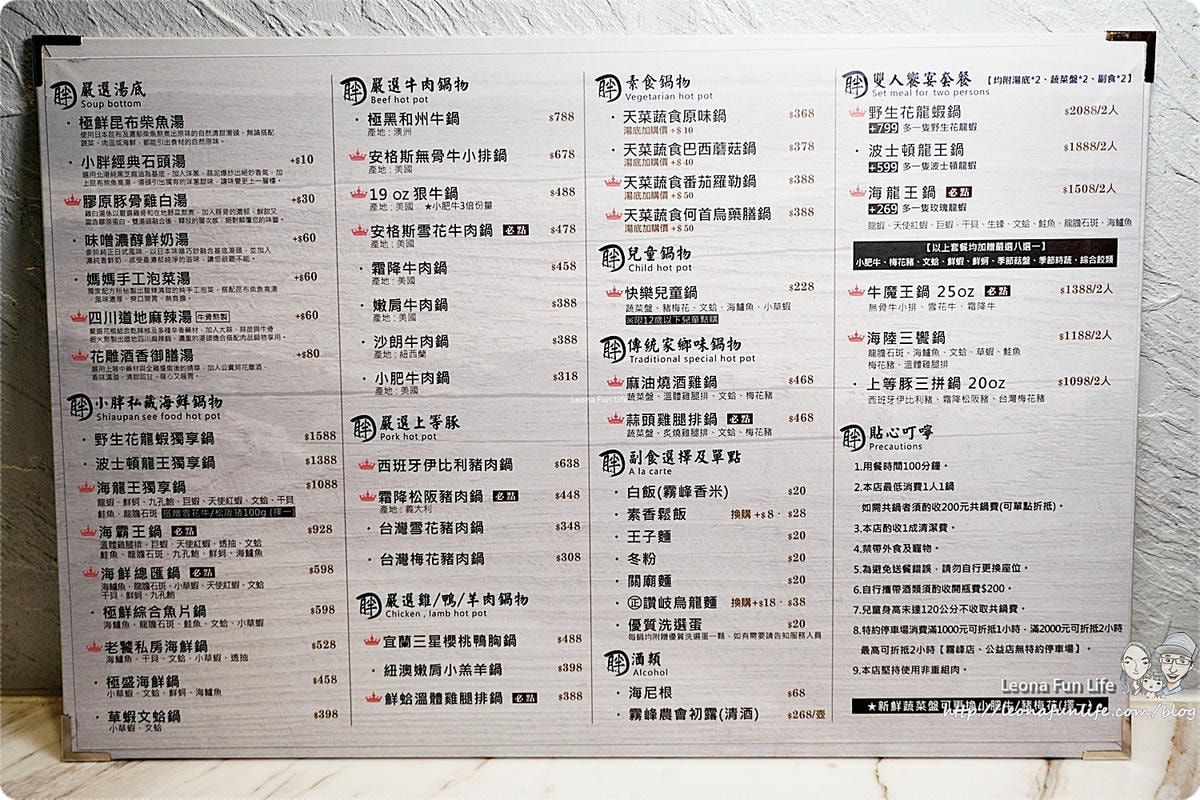 胖 嚴選湯底
Soup bottom
・極鮮昆布柴魚湯
使用日本昆布及濃郁柴魚熬煮出原味的自然清甜湯頭，無論搭配
蔬菜、肉品或海鮮，都能引出食材的自然原味。
・小胖經典石頭湯 +$10
選用北港純黑芝麻油為基底，加入洋蔥、蒜泥爆炒出絕妙香氣，加
上昆布柴魚高湯，湯頭引出獨有的洋蔥甜味，讓味覺更上一層樓。
膠原豚骨雞白湯 +$30
味噌濃醇鮮奶湯 +$60
參照純正日式風味，以日本味噌巧妙融合基底湯頭，並加入
濃純香鮮奶，感受最濃郁純淨的滋味，讓您欲罷不能。
・媽媽手工泡菜湯 +$60
獨家配方所秘製出酸辣清甜的純手工泡菜，搭配昆布柴魚高湯
風味濃厚，爽口開胃，無負擔。
四川道地麻辣湯 牛骨熬製 +$60
花雕酒香御膳湯 +$80
胖 小胖私藏海鮮鍋物
Shiaupan see food hot pot
・野生花龍蝦獨享鍋 $1588
・波士頓龍王獨享鍋 $1388
海龍王獨享鍋 $1088
龍蝦、鮮蚵、九孔鮑、巨蝦、天使紅蝦、文蛤、干貝
鮭魚、龍膽石斑 搭贈雪花牛/松阪豬100g (擇一)
海霸王鍋 必點 $928
溫體雞腿排、巨蝦、天使紅蝦、透抽、文蛤
鮭魚、龍膽石斑、九孔鮑、鮮蚵、海鱸魚
海鮮總匯鍋 必點 $598
海鱸魚、龍膽石斑、小草蝦、天使紅蝦、文蛤
干貝、鮮蚵、九孔鮑
・極鮮綜合魚片鍋 $598
海鱸魚、龍膽石斑、鮭魚、文蛤、小草蝦
老饕私房海鮮鍋 $528
海鱸魚、干貝、文蛤、小草蝦、透抽
・極盛海鮮鍋 $458
小草蝦、文蛤、鮮蚵、海鱸魚
・草蝦文蛤鍋 $398
小草蝦、文蛤
胖 嚴選牛肉鍋物
Beef hot pot
・極黑和州牛鍋 $788
產地：澳洲
安格斯無骨牛小排鍋 $678
產地：美國
19 oz 狠牛鍋 $488
產地：美國 ★小肥牛3倍份量
安格斯雪花牛肉鍋 必點 $478
產地：美國
・霜降牛肉鍋 $458
產地：美國
・嫩肩牛肉鍋 $388
產地：美國
・沙朗牛肉鍋 $388
產地：紐西蘭
・小肥牛肉鍋 $318
產地：美國
胖 嚴選上等豚
Pork hot pot
西班牙伊比利豬肉鍋 $638
霜降松阪豬肉鍋 必點 $448
產地：義大利
・台灣雪花豬肉鍋 $348
・台灣梅花豬肉鍋 $308
胖 嚴選雞/鴨/羊肉鍋物
Chicken , lamb hot pot
宜蘭三星櫻桃鴨胸鍋 $488
・紐澳嫩肩小羔羊鍋 $398
鮮蛤溫體雞腿排鍋 必點 $388
胖 素食鍋物
Vegetarian hot pot
・天菜蔬食原味鍋 $368
湯底加購價 +$10
・天菜蔬食巴西蘑菇鍋 $378
湯底加購價 +$40
天菜蔬食番茄羅勒鍋 $388
湯底加購價 +$50
天菜蔬食何首烏藥膳鍋 $388
湯底加購價 +$50
胖 兒童鍋物
Child hot pot
快樂兒童鍋 $228
蔬菜盤、豬梅花、文蛤、海鱸魚、小草蝦
※限12歲以下兒童點購
胖 傳統家鄉味鍋物
Traditional special hot pot
麻油燒酒雞鍋 $468
蔬菜盤、溫體雞腿排、文蛤、梅花豬
蒜頭雞腿排鍋 必點 $468
蔬菜盤、炙燒雞腿排、文蛤、梅花豬
胖 副食選擇及單點
A la carte
・白飯(霧峰香米) $20
・素香鬆飯 換購 +$8・ $28
・王子麵 $20
・冬粉 $20
・關廟麵 $20
・㊣讚岐烏龍麵 換購+$18・ $38
・優質洗選蛋 $20
每鍋均附贈優質洗選蛋一顆，如有需要請告知服務人員
胖 酒類
Alcohol
・海尼根 $68
・霧峰農會初露(清酒) $268/壺
胖 雙人饗宴套餐 【均附湯底*2、蔬菜盤*2、副食*2】
Set meal for two persons
野生花龍蝦鍋 $2088/2人
+799 多一隻野生花龍蝦
・波士頓龍王鍋 $1888/2人
+599 多一隻波士頓龍蝦
海龍王鍋 必點 $1508/2人
+269 多一隻玫瑰龍蝦
龍蝦、天使紅蝦、巨蝦、干貝、生蠔、文蛤、鮭魚、龍膽石斑、海鱸魚
【以上套餐均加贈嚴選八選一】
小肥牛、梅花豬、文蛤、鮮蝦、鮮蚵、季節菇盤、季節時蔬、綜合餃類
牛魔王鍋 25oz 必點 $1388/2人
無骨牛小排、雪花牛、霜降牛
海陸三饗鍋 $1188/2人
龍膽石斑、海鱸魚、文蛤、草蝦、鮭魚
梅花豬、溫體雞腿排
・上等豚三拼鍋 20oz $1098/2人
西班牙伊比利豬、霜降松阪豬、台灣梅花豬
胖 貼心叮嚀
Precautions
1.用餐時間100分鐘。
2.本店最低消費1人1鍋
如需共鍋者須酌收200元共鍋費(可單點折抵)。
3.本店酌收1成清潔費。
4.禁帶外食及寵物。
5.為避免送餐錯誤，請勿自行更換座位。
6.自行攜帶酒類須酌收開瓶費$200。
7.兒童身高未達120公分不收取共鍋費。
8.特約停車場消費滿1000元可折抵1小時，滿2000元可折抵2小時
最高可折抵2小時【霧峰店、公益店無特約停車場】。
9.本店堅持使用非重組肉。
★新鮮蔬菜盤可更換小肥牛/豬梅花(擇一)
Leona Fun Life
Leona Fun Life
http://leonafunlife.com/blog